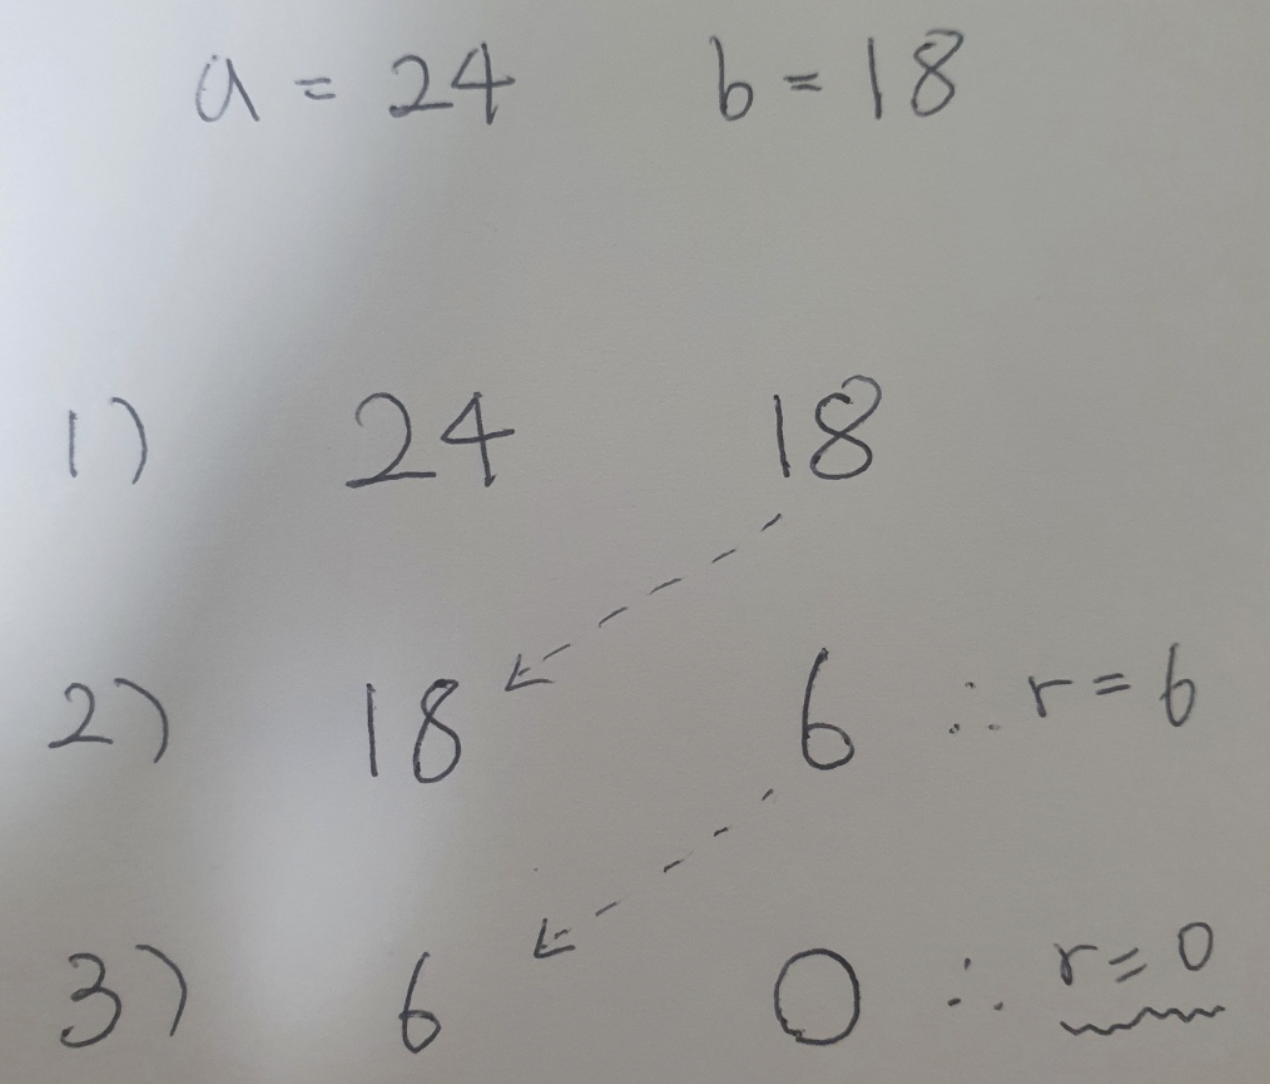 a = 24 b = 18
1) 24 18
2) 18 6 ∴ r = 6
3) 6 0 ∴ r = 0